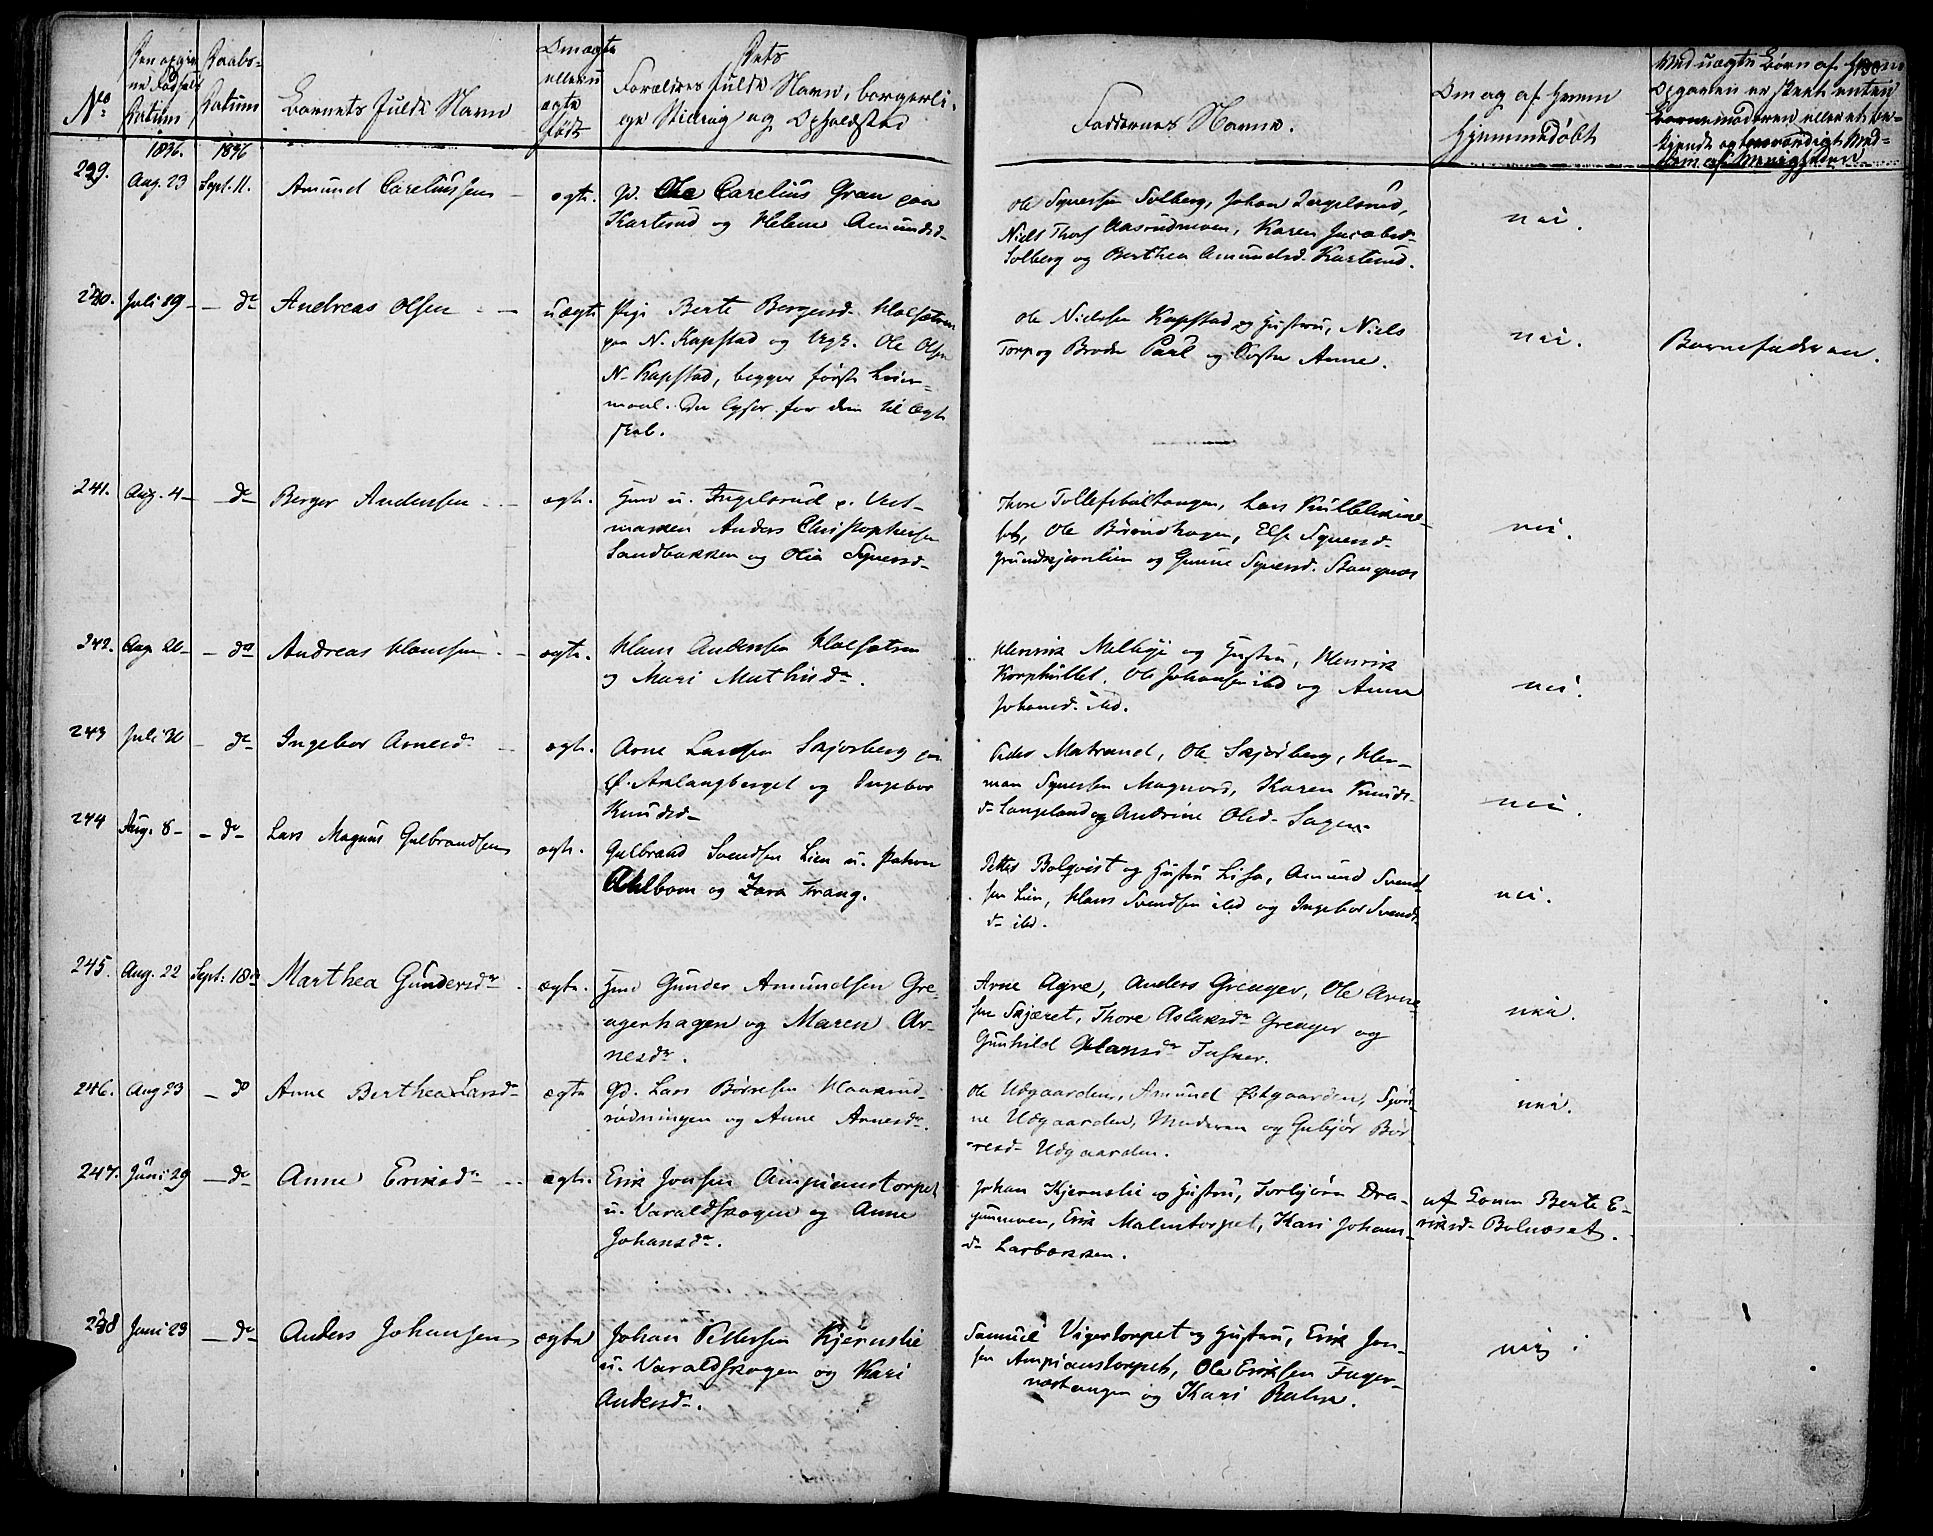 No
Den opgiv
ne Fødsels
Datum
Daabs-
Datum
Barnets fulde Navn
Om ægte
eller u
ægte
født
Dets
Forældres fulde Navn, borgerli-
ge Stilling og Opholdsted
Faddernes Navne.
Om og af hvem
Hjemmedøbt
Ved uægte Børn af hvem
Opgaven er skeet enten
Barnemoderen eller et be-
kjendt og troværdigt Med-
lem af Menigheden
1836. 1836
229. Aug. 23 Sept. 11. Amund Careliussen ægte. Gd. Ole Carelius Gran paa
Kartrud og Helene Amundsd.
Ole Syversen Solberg, Johan
Niels Thorf Aasrudmoen, Karen Jacobsd.
Solberg og Berthea Amundsd. Kartrud.
nei.
240. Juli 19 – do Andreas Olsen uægte Pige Berte Bergersd. Holsætren
paa N. Kapstad og Ole Olsen
N. Kapstad, begges første Leier-
maal. Der lyses for dem til Ægte
skab.
Ole Nielsen Kapstad og Hustru, Niels
Torp og Broder Paul og Søster Anne.
nei.
Barnefaderen.
241. Aug. 4 – do Berger Andersen ægte. Huusm. u. Ingelsrud p. Vest-
marken Anders Christophersen
Sandbakken og Olia Syversd.
Thore Tollefsbøltangen, Lars
Ole Børindhagen, Else Syversd.
Grundtjernlien og Gunne Syversd. Stangnæs
nei.
242. Aug. 20 – do Andreas Hansen ægte. Hans Andersen Holsætren
og Mari Mathisdr.
Henrik Melbye og Hustru, Henrik
Korphullet, Ole Johansen ibd og Anne
Johansd. ibd.
nei.
243 Juli 30 – do Ingebor Arnesd. ægte. Arne Larsen Skjørberg paa
Ø. Aslangberget og Ingebor
Knudsd.
Peder Matrand, Ole Skjørberg, Her-
man Syversen Magnord, Karen Knuds-
d. Langeland og Andrine Olsd. Sagen.
nei.
244 Aug. 8 – do Lars Magnus Gulbrandsen ægte. Gulbrand Svendsen Lien u. Patron
Ahlbom og Zara Frang.
Petter Bolqvist og Hustru Lisa, Amund Svend-
sen Lien, Hans Svendsen ibd og Ingebor Svends-
d. ibd.
nei.
245. Aug. 22 Sept. 18de Marthea Gundersdr. ægte. Huusm. Gunder Amundsen Gre-
agerhagen og Maren Ar-
nesdr.
Arne Agre, Anders Greager, Ole Arne-
sen Skjæret, Thore Aslaksdr Greager og
Gunhild Hansdr Fasker.
nei.
246. Aug 23 – do Anne Berthea Larsdr. ægte Gd. Lars Børresen Haakerud-
rødningen og Anne Arnesdr.
Ole Udgaarden, Amund Østgaarden, Syver-
ne Udgaarden, Moderen og Gubjør Bør-
resd. Udgaarden.
nei.
247. Juni 29 – do Anne Eriksdr. ægte. Erik Jonsen Ampianstorpet
u. Varaldskogen og Anne
Johansdr.
Johan Kjernslie og Hustru, Torbjørn Dra-
gunmoen, Erik Malentorpet, Kari Johans-
d. Larbakken.
af Konen Berte E-
riksd. Bolnæset.
248 Juni 23 – do Anders Johansen ægte Johan Pettersen Kjernslie
u. Varaldskogen og Kari
Andersd.
Samuel Vigertorpet og Hustru, Erik Jon-
sen Ampianstorpet, Ole Eriksen Fager-
næstangen og Kari Balne.
nei.